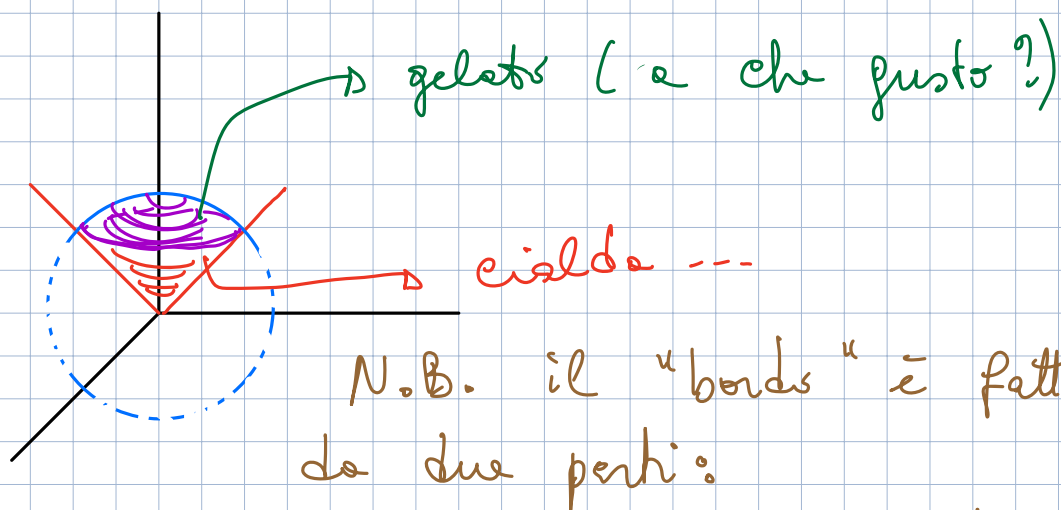 gelato ( a che gusto ?)
cialda ---
N.B. il "bordo" è fatt
da due parti: